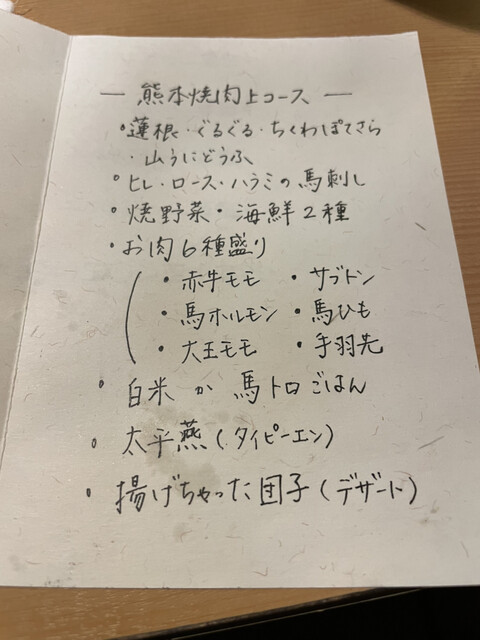 ― 熊本焼肉上コース ―
・蓮根・ぐるぐる・ちくわぽてさら
・山うにどうふ
・ヒレ・ロース・ハラミの馬刺し
・焼野菜・海鮮2種
・お肉6種盛り
・赤牛モモ ・サブトン
・馬ホルモン ・馬ひも
・大王モモ ・手羽先
・白米 か 馬トロごはん
・太平燕(タイピーエン)
・揚げちゃった団子(デザート)